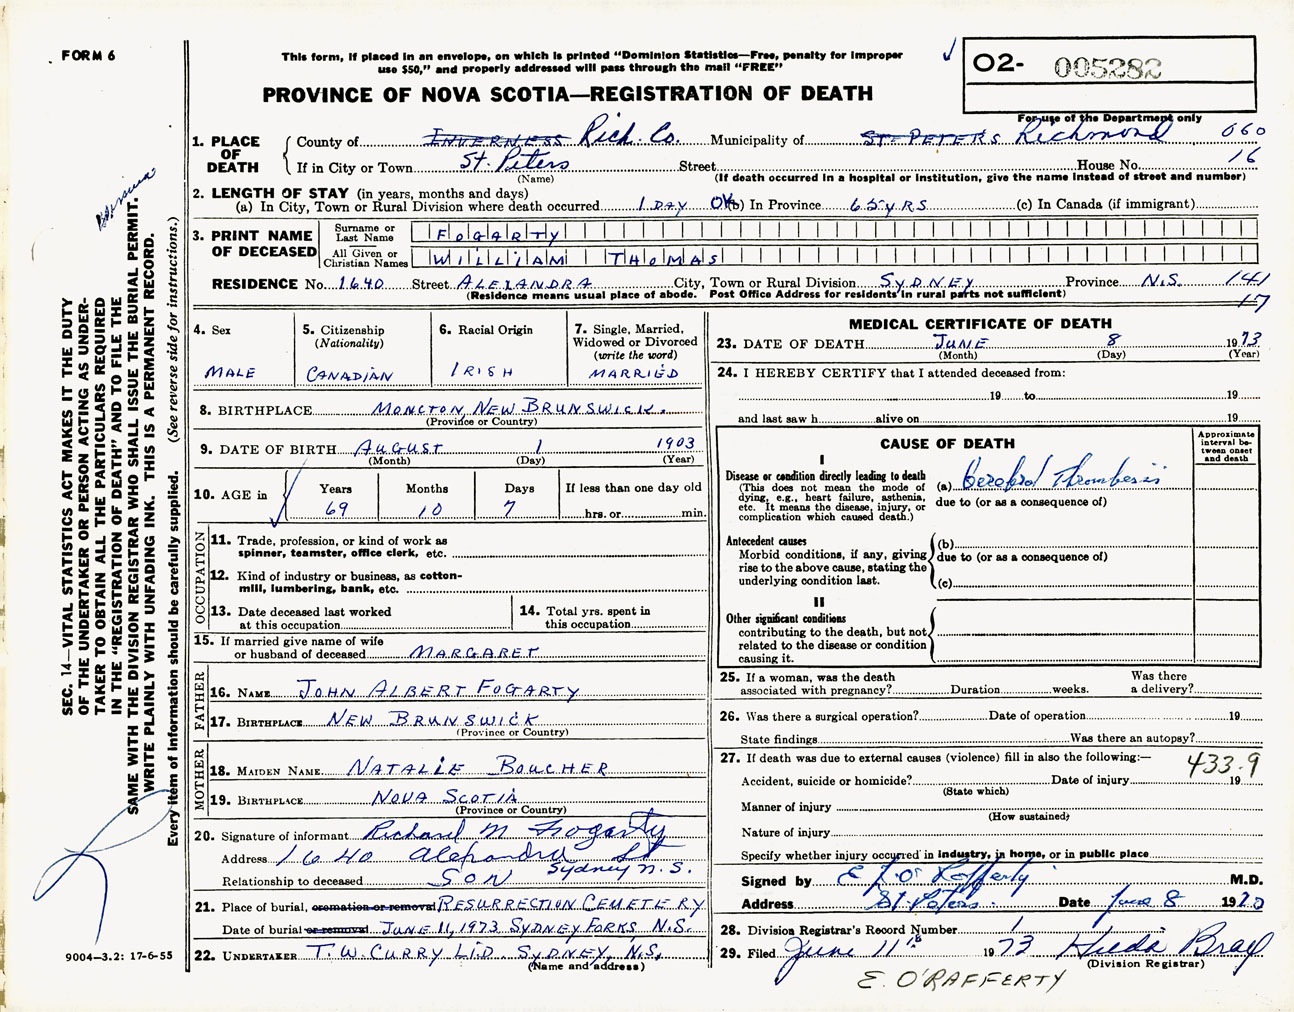 FORM 6
This form, if placed in an envelope, on which is printed "Dominion Statistics—Free, penalty for improper
use $50," and properly addressed will pass through the mail "FREE"
O2- 005282
PROVINCE OF NOVA SCOTIA—REGISTRATION OF DEATH
For use of the Department only
1. PLACE OF DEATH
County of INVERNESS Rich. Co. Municipality of ST. PETERS Richmond 060
If in City or Town St. Peters Street House No. 16
(Name) (If death occurred in a hospital or institution, give the name instead of street and number)
2. LENGTH OF STAY (in years, months and days)
(a) In City, Town or Rural Division where death occurred 1 DAY (b) In Province 65 YRS (c) In Canada (if immigrant)
3. PRINT NAME OF DECEASED
Surname or Last Name FOGARTY
All Given or Christian Names WILLIAM THOMAS
RESIDENCE No. 1640 Street ALEXANDRA City, Town or Rural Division SYDNEY Province N.S. 141
(Residence means usual place of abode. Post Office Address for residents in rural parts not sufficient) 17
4. Sex
MALE
5. Citizenship
(Nationality)
CANADIAN
6. Racial Origin
IRISH
7. Single, Married,
Widowed or Divorced
(write the word)
MARRIED
8. BIRTHPLACE MONCTON, NEW BRUNSWICK.
(Province or Country)
9. DATE OF BIRTH AUGUST 1 1903
(Month) (Day) (Year)
10. AGE in
Years Months Days If less than one day old
69 10 7 hrs. or min.
OCCUPATION
11. Trade, profession, or kind of work as
spinner, teamster, office clerk, etc.
12. Kind of industry or business, as cotton-
mill, lumbering, bank, etc.
13. Date deceased last worked
at this occupation
14. Total yrs. spent in
this occupation
15. If married give name of wife
or husband of deceased MARGARET
FATHER
16. NAME JOHN ALBERT FOGARTY
17. BIRTHPLACE NEW BRUNSWICK
(Province or Country)
MOTHER
18. MAIDEN NAME NATALIE BOUCHER
19. BIRTHPLACE NOVA SCOTIA
(Province or Country)
20. Signature of informant Richard M Fogarty
Address 1640 Alexandra St
Sydney N.S.
Relationship to deceased SON
21. Place of burial, cremation or removal RESURRECTION CEMETERY
Date of burial or removal JUNE 11, 1973 SYDNEY FORKS N.S.
22. UNDERTAKER T.W. CURRY LTD. SYDNEY, N.S.
(Name and address)
MEDICAL CERTIFICATE OF DEATH
23. DATE OF DEATH JUNE 8 1973
(Month) (Day) (Year)
24. I HEREBY CERTIFY that I attended deceased from:
19 to 19
and last saw h alive on 19
CAUSE OF DEATH
Approximate
interval be-
tween onset
and death
I
Disease or condition directly leading to death
(This does not mean the mode of
dying, e.g., heart failure, asthenia,
etc. It means the disease, injury, or
complication which caused death.)
(a) Cerebral Thrombosis
due to (or as a consequence of)
Antecedent causes
Morbid conditions, if any, giving
rise to the above cause, stating the
underlying condition last.
(b)
due to (or as a consequence of)
(c)
II
Other significant conditions
contributing to the death, but not
related to the disease or condition
causing it.
25. If a woman, was the death
associated with pregnancy? Duration weeks. Was there
a delivery?
26. Was there a surgical operation? Date of operation 19
State findings Was there an autopsy?
27. If death was due to external causes (violence) fill in also the following:—
433.9
Accident, suicide or homicide? Date of injury 19
(State which)
Manner of injury
(How sustained)
Nature of injury
Specify whether injury occurred in industry, in home, or in public place
Signed by E J O'Rafferty M.D.
Address St. Peters. Date June 8 1970
28. Division Registrar's Record Number 1
29. Filed June 11th 1973
(Division Registrar)
E. O'RAFFERTY
SEC. 14—VITAL STATISTICS ACT MAKES IT THE DUTY
OF THE UNDERTAKER OR PERSON ACTING AS UNDER-
TAKER TO OBTAIN ALL THE PARTICULARS REQUIRED
IN THE "REGISTRATION OF DEATH" AND TO FILE THE
SAME WITH THE DIVISION REGISTRAR WHO SHALL ISSUE THE BURIAL PERMIT.
WRITE PLAINLY WITH UNFADING INK. THIS IS A PERMANENT RECORD.
Every item of information should be carefully supplied. (See reverse side for instructions.)
9004—3.2: 17-6-55